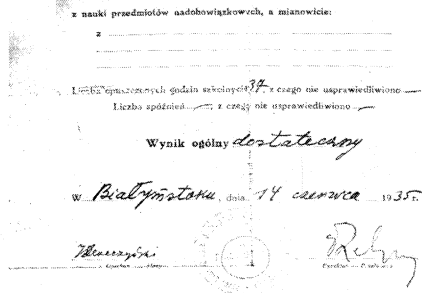 z nauki przedmiotów nadobowiązkowych, a mianowicie:
z
Liczba opuszczonych godzin szkolnych 37 z czego nie usprawiedliwiono —
Liczba spóźnień —, z czego nie usprawiedliwiono —
Wynik ogólny dostateczny
W Białymstoku, dnia 14 czerwca 1935 r.